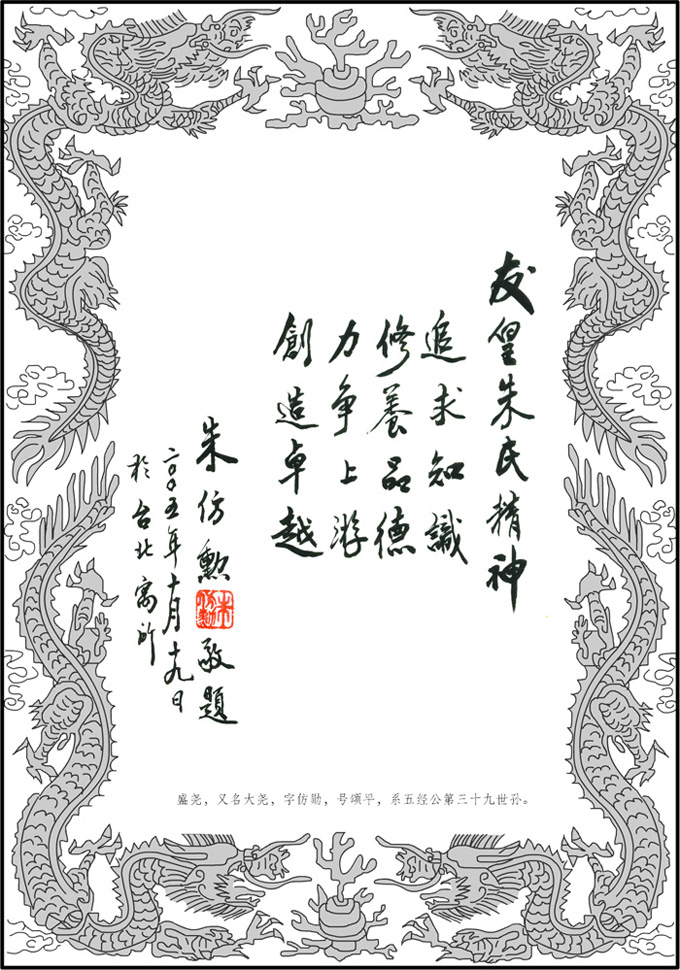 友皇朱氏精神
追求知識
修養品德
力争上游
創造卓越
朱仿勲
朱仿勲
敬題
二〇〇五年十月十九日
於台北寓所
盛尧，又名大尧，字仿勋，号颂平，系五经公第三十九世孙。